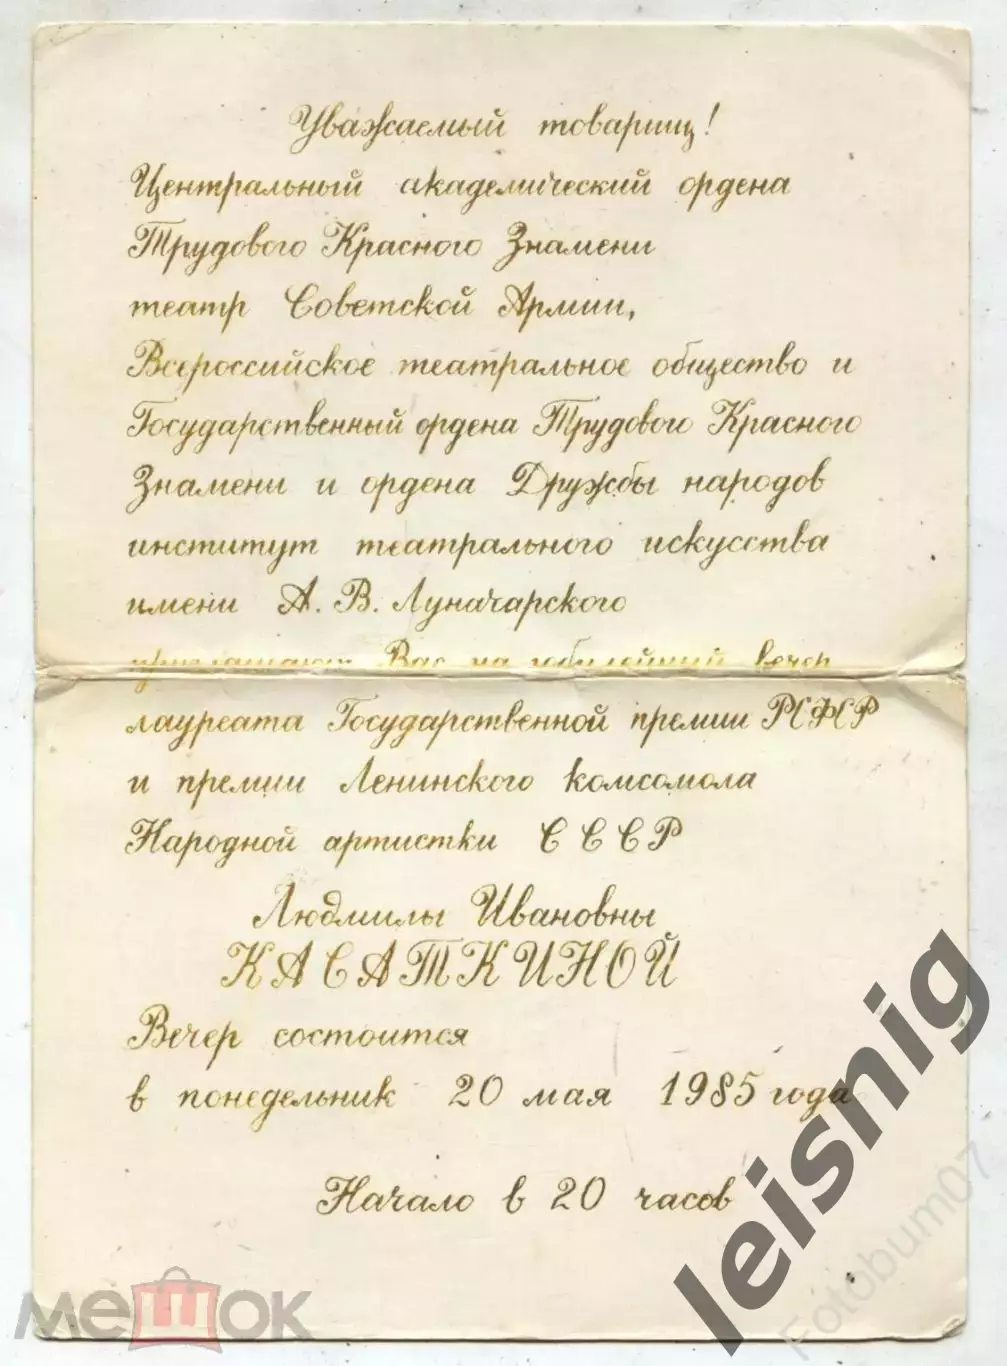 Уважаемый товарищ!
Центральный академический ордена
Трудового Красного Знамени
театр Советской Армии,
Всероссийское театральное общество и
Государственный ордена Трудового Красного
Знамени и ордена Дружбы народов
институт театрального искусства
имени А. В. Луначарского
приглашают Вас на юбилейный вечер
лауреата Государственной премии РСФСР
и премии Ленинского комсомола
Народной артистки СССР
Людмилы Ивановны
КАСАТКИНОЙ
Вечер состоится
в понедельник 20 мая 1985 года
Начало в 20 часов
мешок
leisnig
Fotobum07